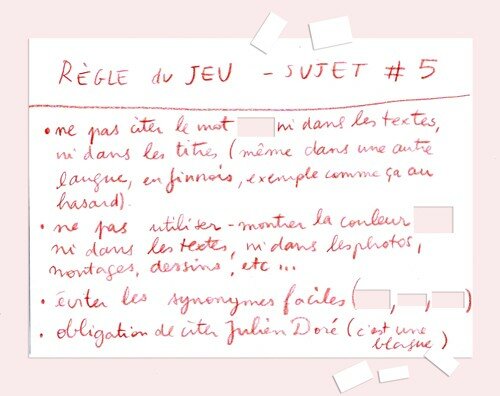 RÈGLE DU JEU - SUJET # 5
• ne pas citer le mot ni dans les textes,
ni dans les titres (même dans une autre
langue, en finnois, exemple comme ça au
hasard).
• ne pas utiliser - montrer la couleur
ni dans les textes, ni dans les photos,
montages, dessins, etc...
• éviter les synonymes faciles ( , , )
• obligation de citer Julien Doré (c'est une
blague)